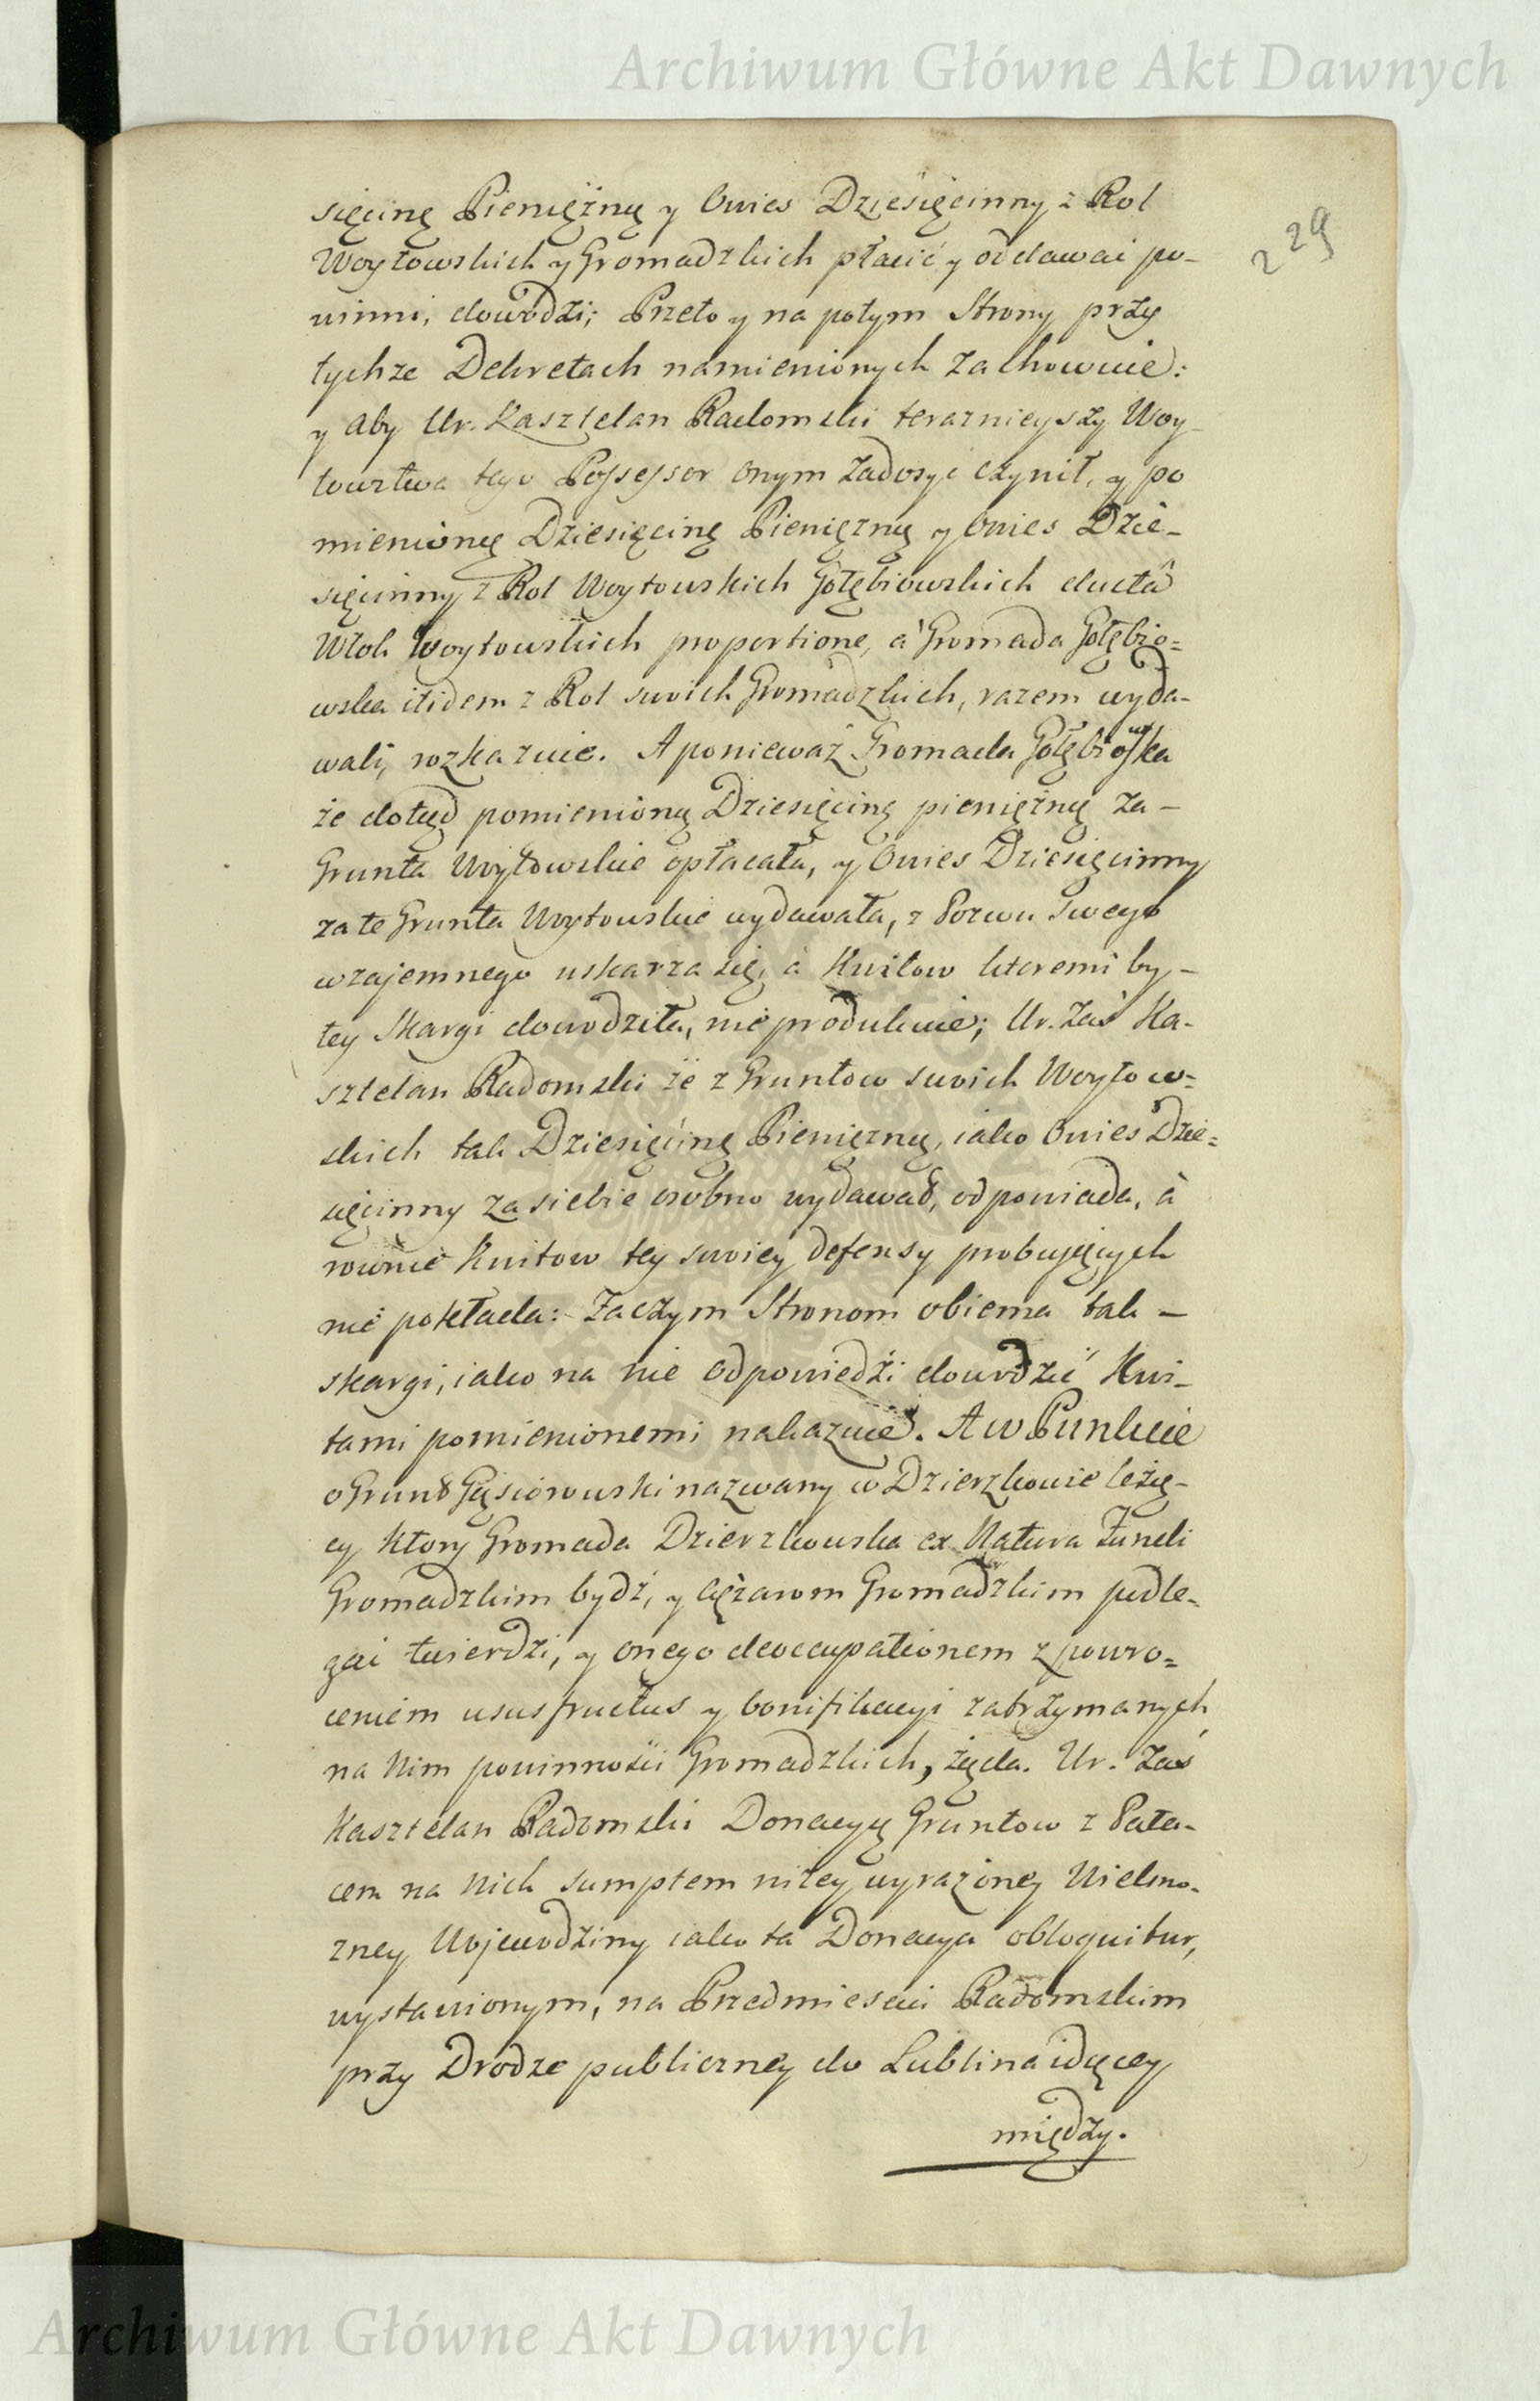 Archiwum Główne Akt Dawnych
229
sięcinę Pieniężną y Owies Dziesięcinny z Rol
Woytowskich y Gromadzkich płacić y oddawać po-
winni, dowodzi; Przeto y na potym Strony przy
tychże Dekretach namienionych zachowuie:
y aby Ur. Kasztelan Radomski teraznieyszy Woy-
towztwa tego Possessor onym zadosyć czynił, y po
mienioną Dziesięcinę Pieniężną y Owies Dzie-
sięcinny z Rol Woytowskich Gołębiowskich ducta
Włok Woytowskich proportione, a Gromada Gołębio=
wska itidem z Rol swoich Gromadzkich, razem wyda-
wali, rozkazuie. A ponieważ Gromada Gołębiowska
że dotąd pomienioną Dziesięcinę pieniężną za-
Grunta Woytowskie opłacała, y Owies Dziesięcinny
za te Grunta Woytowskie wydawała, z Pozwu swego
wzajemnego uskarza się, a Kwitow ktoremi by-
tey Skargi dowodziła, nie produkuie; Ur. Zaś Ka-
sztelan Radomski że z Gruntow swoich Woytow-
skich tak Dziesięcinę Pieniężną, iako Owies Dzie=
sięcinny za siebie osobno wydawał, odpowiada, a
rownie Kwitow tey swoiey defensy probuiących
nie pokłada: Zaczym Stronom obiema tak -
skargi, iako na nie odpowiedzi dowodzić Kwi-
tami pomienionemi nakazuie. A w Punkcie
o Grunt Gąsiorowski nazwany w Dzierzkowie leżą-
cy Ktory Gromada Dzierzkowska ex Natura Fundi
Gromadzkim bydź, y ciężarom Gromadzkim podle-
gać twierdzi, y onego deoccupationem z powro=
ceniem ususfructus y bonifikacyi zatrzymanych
na Nim powinności Gromadzkich, żąda. Ur. Zaś
Kasztelan Radomski Donacyą Gruntow z Pała-
cem na Nich sumptem niżey wyrażoney Wielmo-
zney Wojewodziny iako ta Donacya obloquitur,
wystawionym, na Przedmiesciu Radomskim
przy Drodze publiczney do Lublina idącey
między.
Archiwum Główne Akt Dawnych